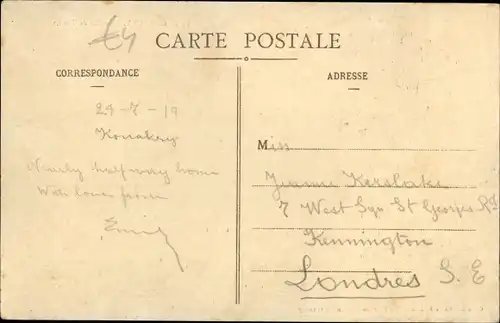 €4
CARTE POSTALE
CORRESPONDANCE
ADRESSE
29-7-19
Konakry
Nearly half way home
With love from
Emily
Miss
Jeanne Kerslake
7 West Sqr St Georges Rd
Kennington
Londres S.E